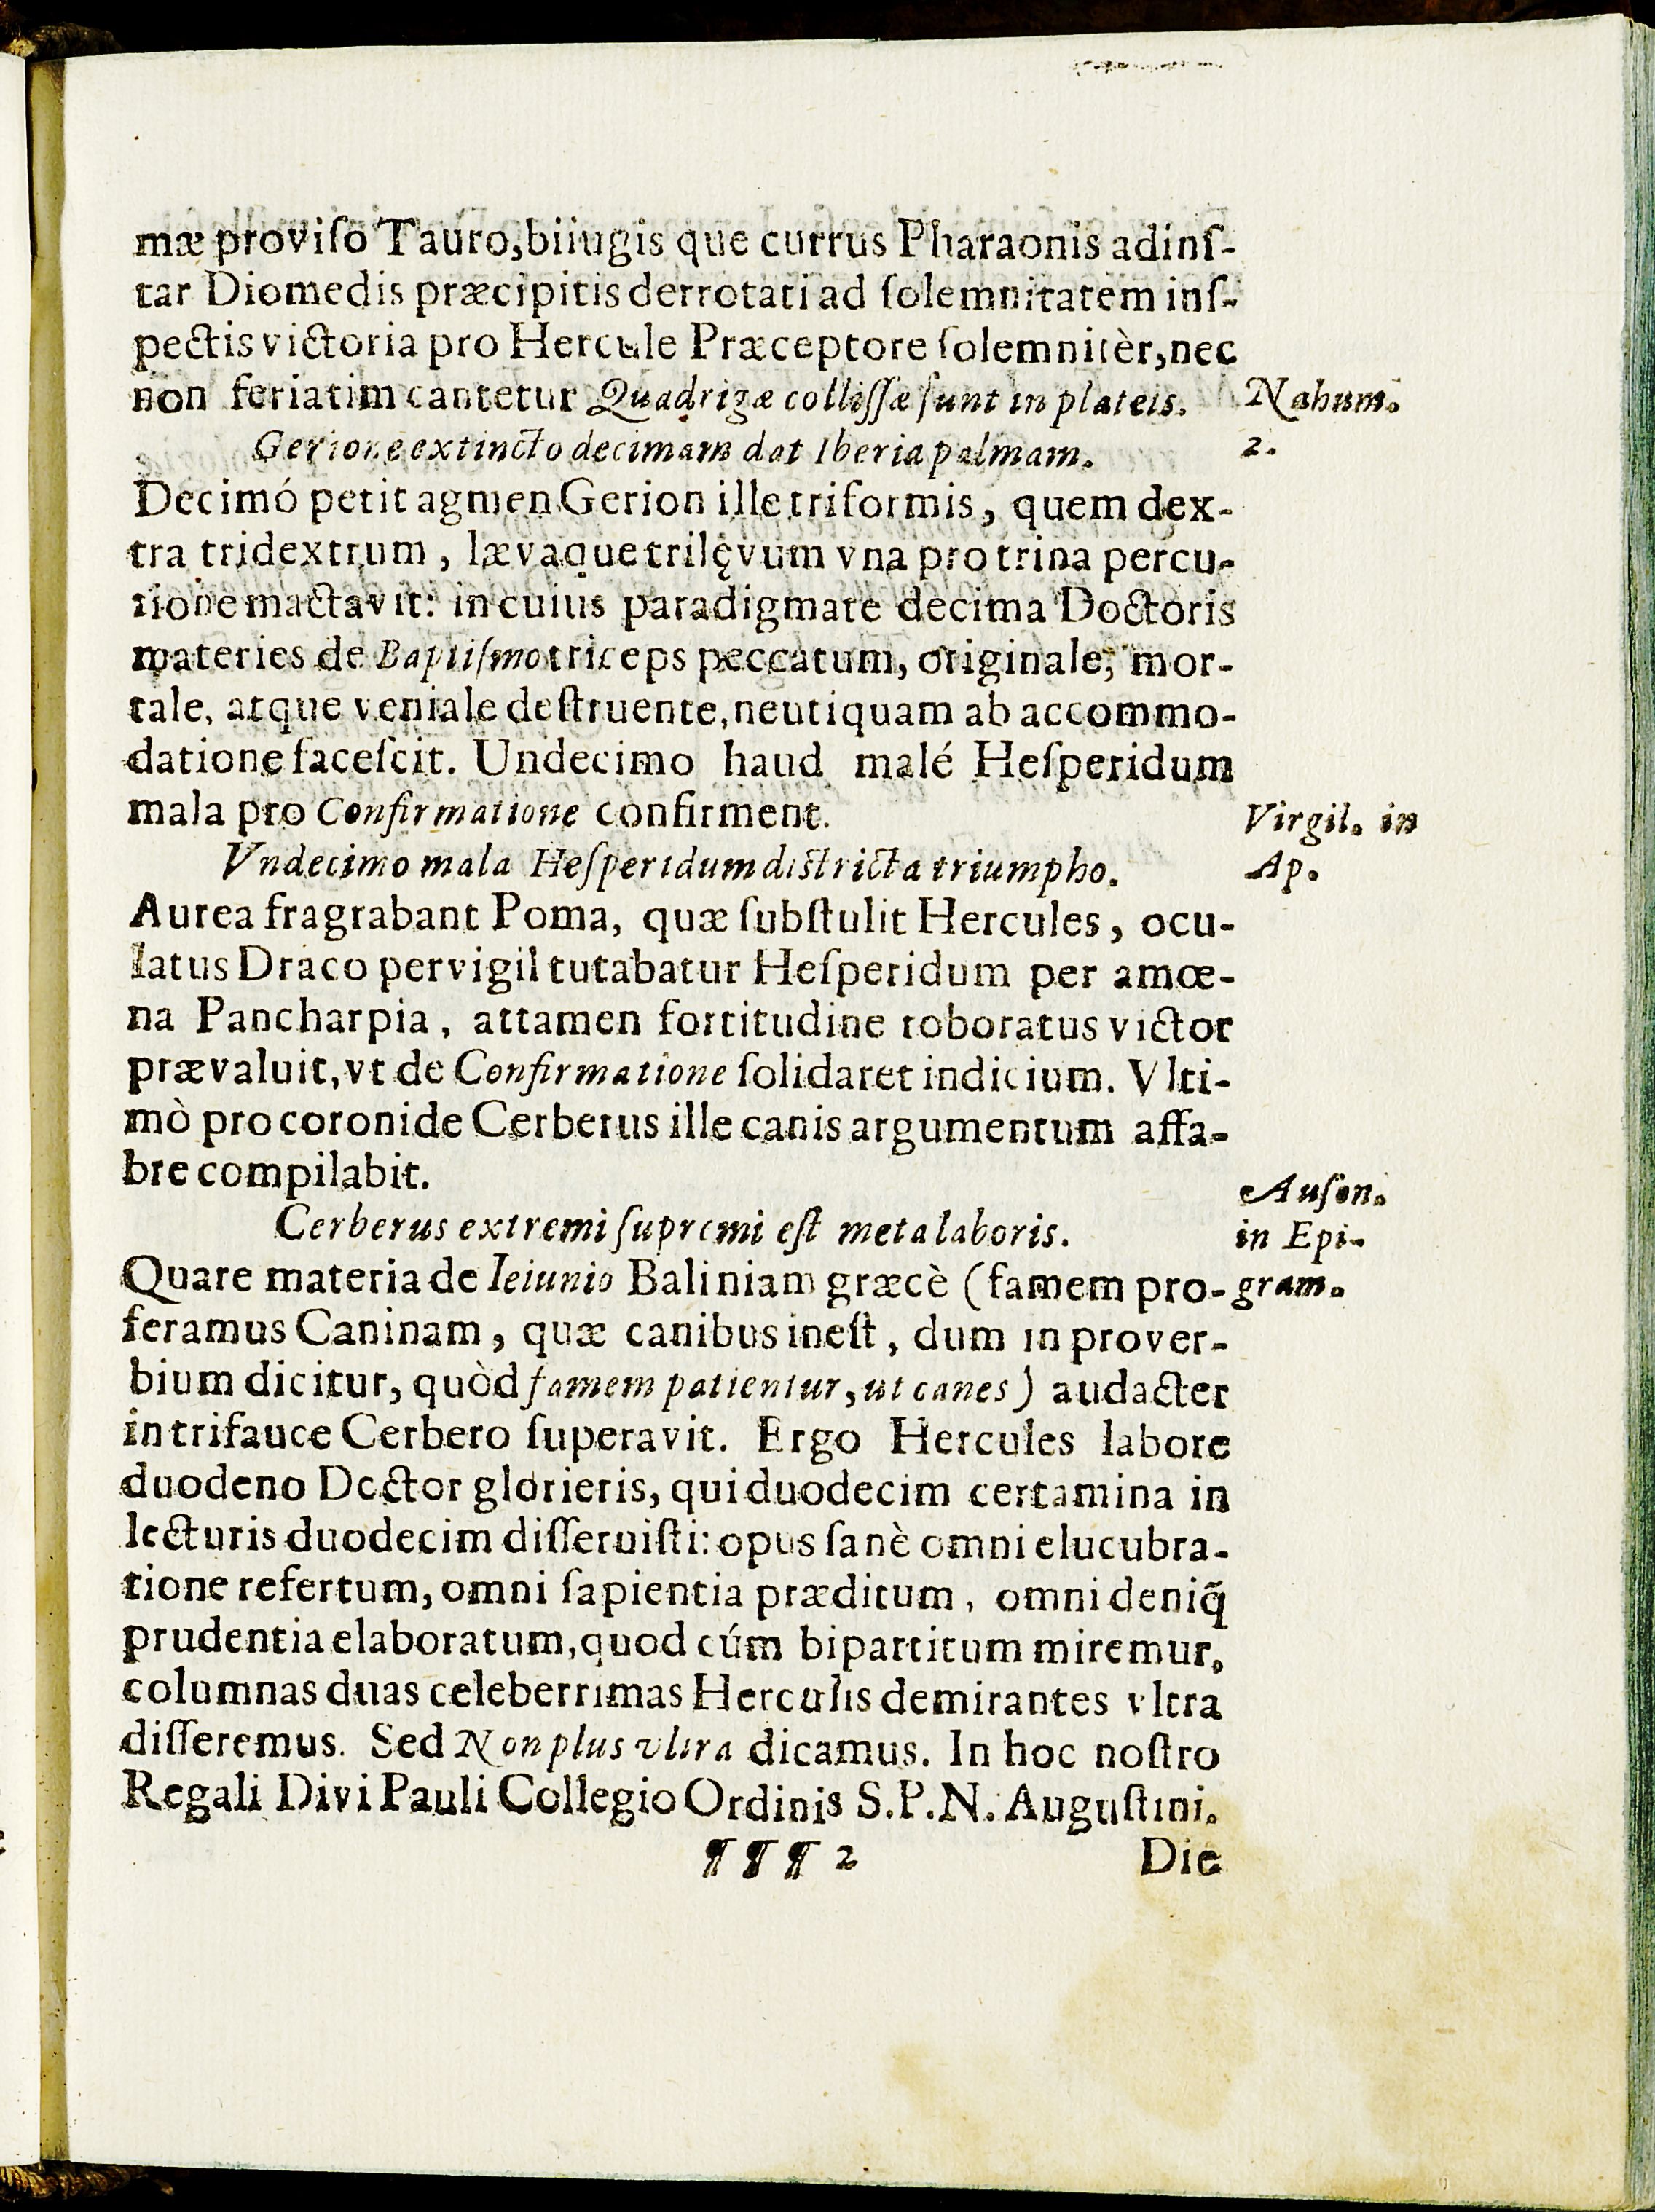 mæ proviſo Tauro, biiugis que currus Pharaonis adinſ-
tar Diomedis præcipitis derrotati ad ſolemnitatem inſ-
pectis victoria pro Hercule Præceptore ſolemnitèr, nec
non feriatim cantetur Quadrigæ colliſſæ ſunt in plateis.
Nahum.
2.
Gerione extincto decimam dat Iberia palmam.
Decimó petit agmen Gerion ille triformis, quem dex-
tra tridextrum, lævaque trilęvum vna pro trina percu-
tione mactavit: in cuius paradigmate decima Doctoris
materies de Baptiſmo triceps peccatum, originale, mor-
tale, atque veniale deſtruente, neutiquam ab accommo-
datione faceſcit. Undecimo haud malé Heſperidum
mala pro Confirmatione confirment.
Virgil. in
Ap.
Vndecimo mala Heſperidum districta triumpho.
Aurea fragrabant Poma, quæ ſubſtulit Hercules, ocu-
latus Draco pervigil tutabatur Heſperidum per amœ-
na Pancharpia, attamen fortitudine roboratus victor
prævaluit, vt de Confirmatione ſolidaret indicium. Vlti-
mò pro coronide Cerberus ille canis argumentum affa-
bre compilabit.
Auſon.
in Epi-
gram.
Cerberus extremi ſupremi eſt meta laboris.
Quare materia de Ieiunio Baliniam græcè (famem pro-
feramus Caninam, quæ canibus ineſt, dum in prover-
bium dicitur, quòd famem patientur, ut canes) audacter
in trifauce Cerbero ſuperavit. Ergo Hercules labore
duodeno Doctor glorieris, qui duodecim certamina in
lecturis duodecim diſſeruiſti: opus ſanè omni elucubra-
tione refertum, omni ſapientia præditum, omni deniq̃
prudentia elaboratum, quod cúm bipartitum miremur,
columnas duas celeberrimas Herculis demirantes vltra
diſſeremus. Sed Non plus vltra dicamus. In hoc noſtro
Regali Divi Pauli Collegio Ordinis S.P.N. Auguſtini.
¶¶¶ 2 Die